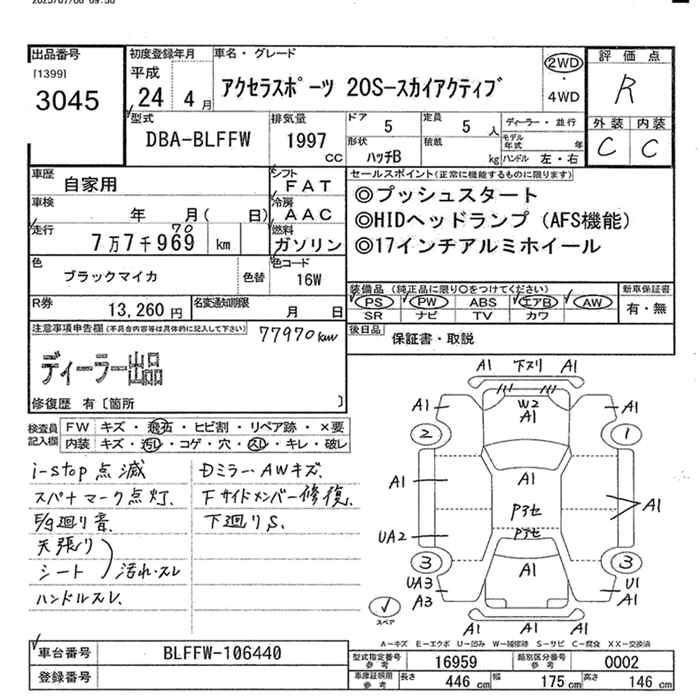 2023/07/06 09:56
出品番号
[1399]
3045
初度登録年月
平成
24年 4月
車名・グレード
アクセラスポーツ 20S-スカイアクティブ
2WD
・
4WD
評価点
R
外装 内装
C C
型式
DBA-BLFFW
排気量
1997
CC
ドア
5
定員
5 人
形状
ハッチB
積載
kg
ディーラー・並行
モデル年式 年
ハンドル 左・右
車歴
自家用
車検
年 月( 日)
走行
7万7千969 km
70
色
ブラックマイカ
色替
R券
13,260 円
名変通知期限
月 日
シフト
FAT
冷房
AAC
燃料
ガソリン
色コード
16W
セールスポイント(正常に機能するものに限ります)
◎プッシュスタート
◎HIDヘッドランプ(AFS機能)
◎17インチアルミホイール
装備品(純正品に限り○をつけてください)
PS PW ABS エアB AW
SR ナビ TV カワ
新車保証書
有・無
後日品
保証書・取説
注意事項申告欄(不具合内容等は具体的に記入して下さい)
77970km
ディーラー出品
修復歴 有〔箇所 〕
検査員記入欄
FW キズ・飛石・ヒビ割・リペア跡・×要
内装 キズ・汚レ・コゲ・穴・スレ・キレ・破レ
i-stop点滅
スパナマーク点灯.
天張り
シート
汚れ・スレ
ハンドルスレ.
Dミラー.AWキズ.
Fサイドメンバー修復.
下廻りS.
A1 下スリ A1
A1 W2 A1 A1
2 1
A1 A1 A1
Pョセ
UA2 Pョセ
3 A1 3
UA3 U1
A3 A1
A1 A1
スペア
A-キズ E-エクボ U-凹み W-補修跡 S-サビ C-腐食 XX-交換済
車台番号
BLFFW-106440
登録番号
型式指定番号
参考
16959
類別区分番号
参考
0002
車庫証明用
参考
長さ 446 cm
幅 175 cm
高さ 146 cm